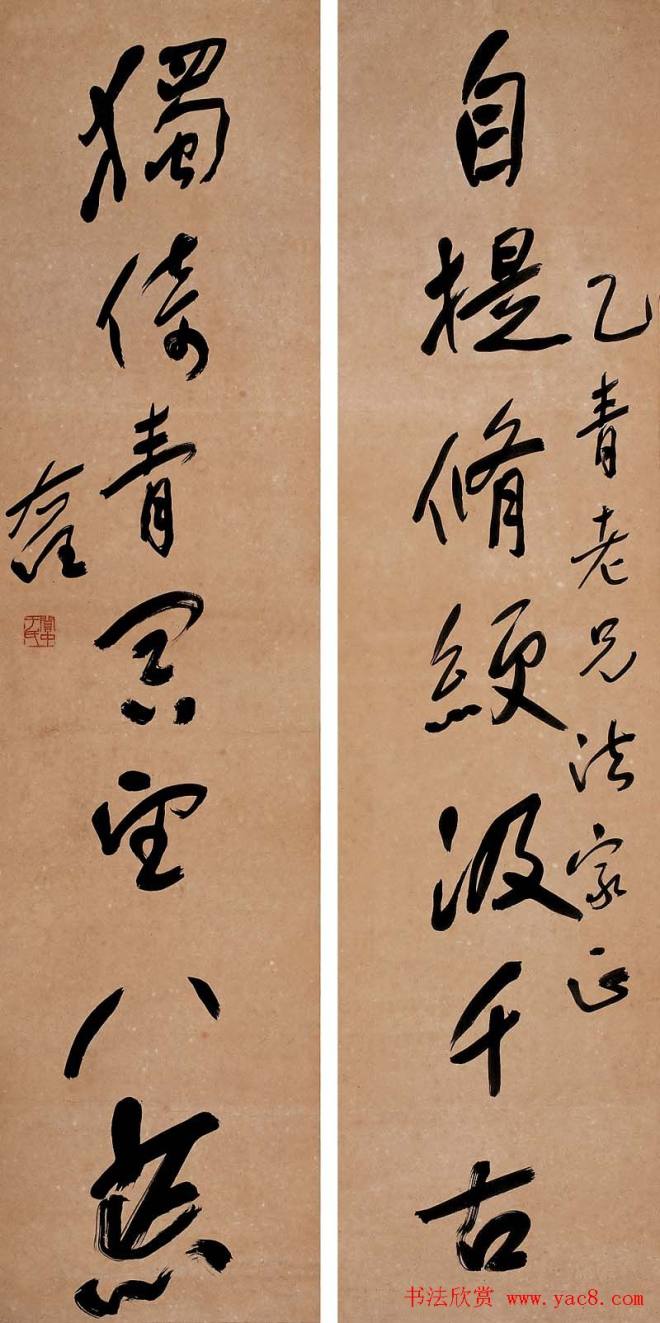 自提脩綆汲千古
乙青老兄法家正
獨倚青冥望八荒
右任
關中于氏
书法欣赏 www.yac8.com